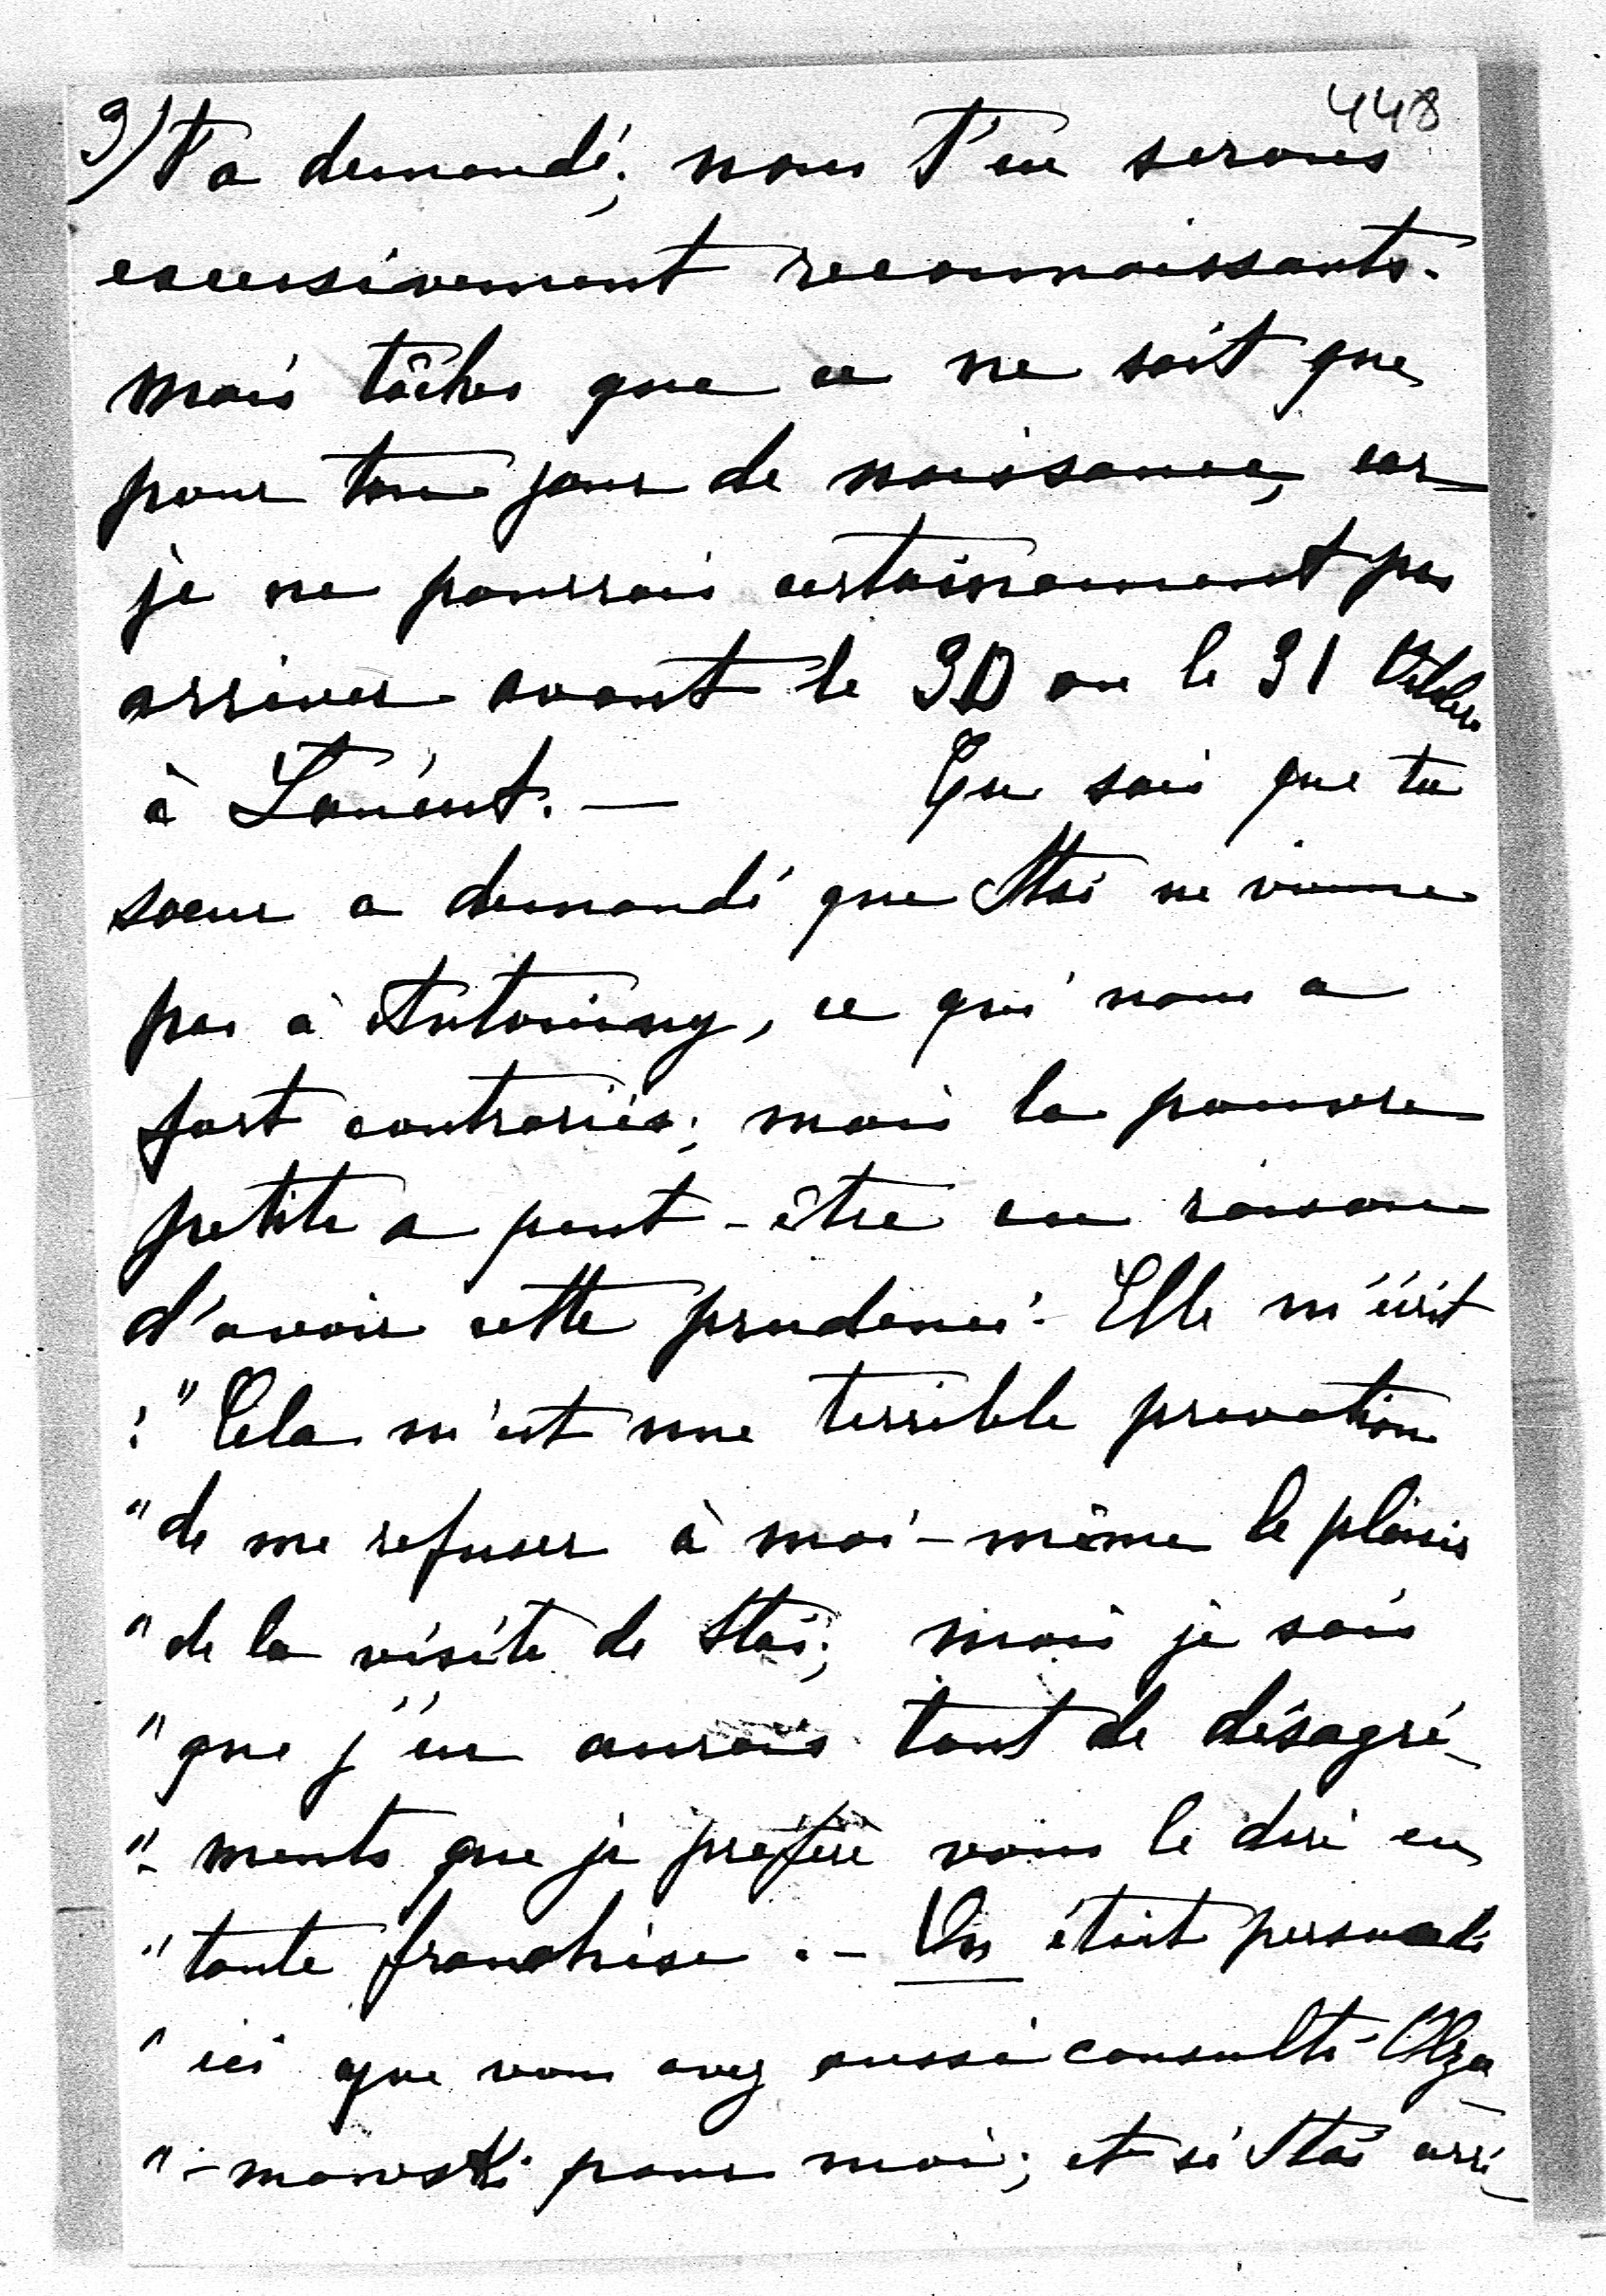 448
3) T'a demandé; nous T'en serons
excessivement reconnaissants.
Mais tâches que ce ne soit que
pour ton jour de naissance, car
je ne pourrais certainement pas
arriver avant le 30 ou le 31 Octobre
à Łańcut. — Tu sais que ta
soeur a demandé que Staś ne vienne
pas à Antoniny, ce qui nous a
fort contrariés; mais la pauvre
petite a peut-être eu raison
d'avoir cette prudence. Elle m'écrit
: " Cela m'est une terrible privation
" de me refuser à moi-même le plaisir
" de la visite de Staś; mais je sais
" que j'en aurais tant de désagré-
"- ments que je préfère vous le dire en
" toute franchise. - On était persuadé
" ici que vous avez aussi consulté
" pour moi; et si Staś arri-